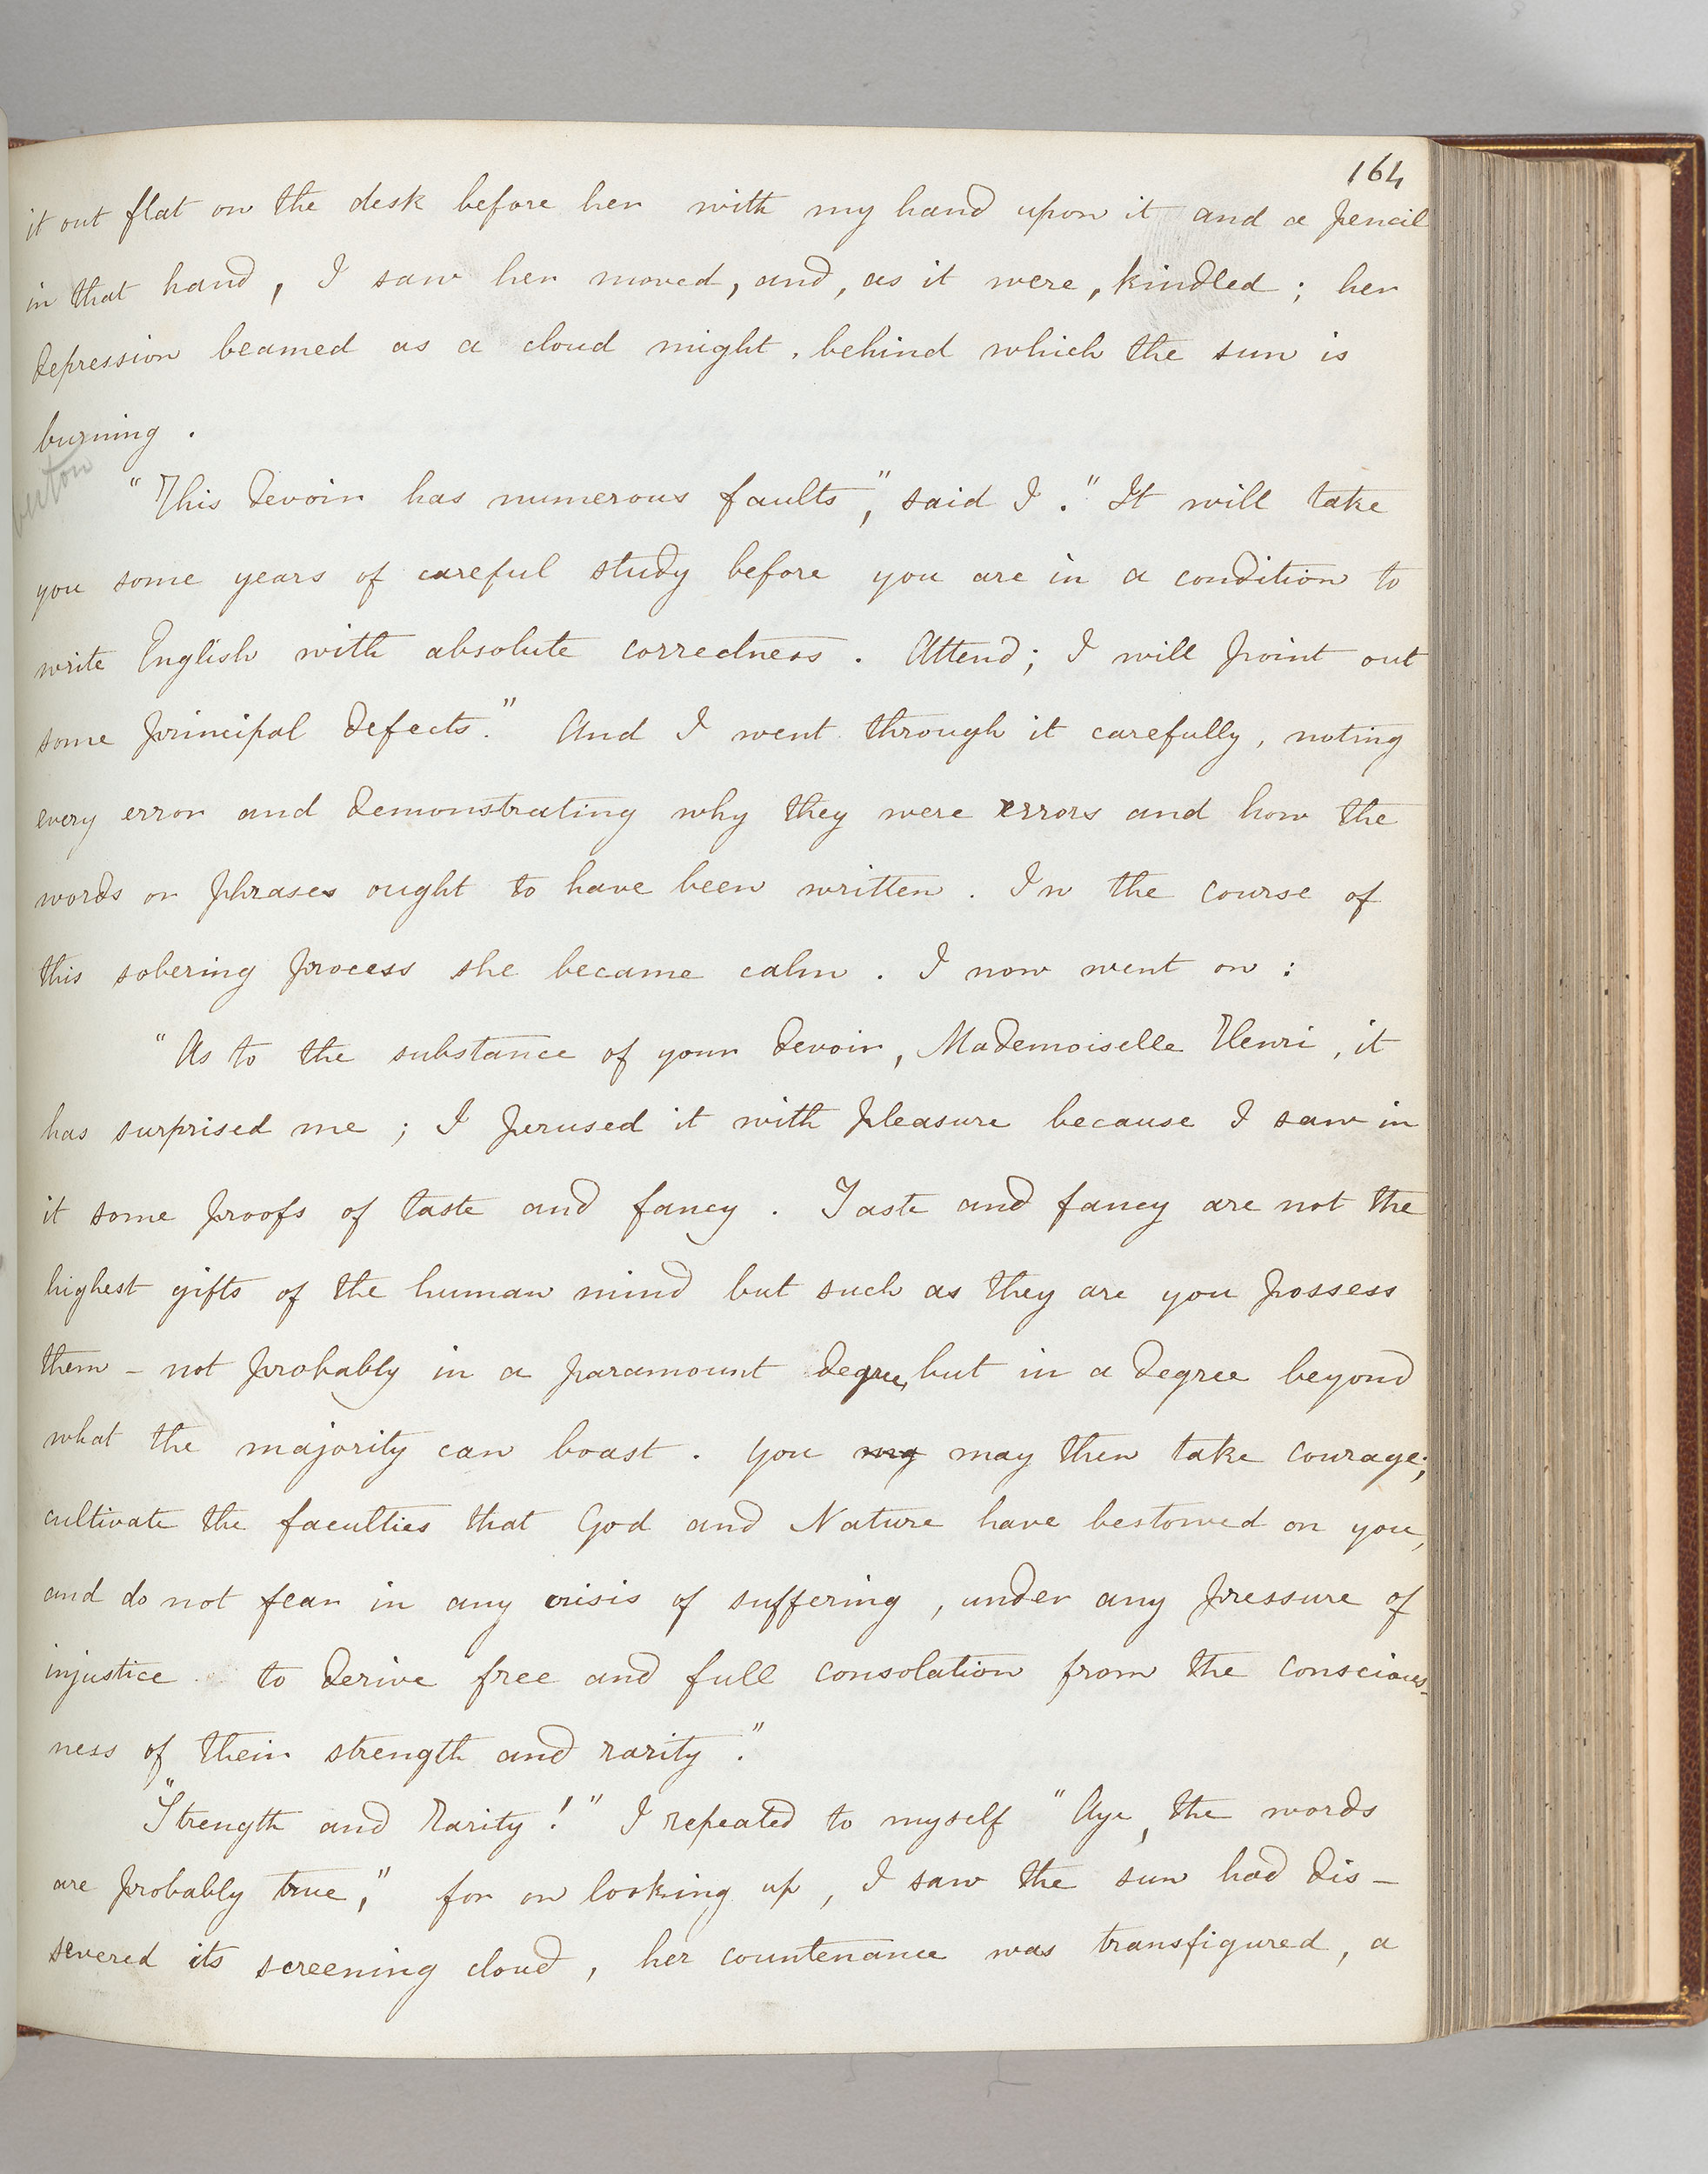 164
it out flat on the desk before her with my hand upon it and a pencil
in that hand, I saw her moved, and, as it were, kindled; her
depression beamed as a cloud might, behind which the sun is
burning.
"This devoir has numerous faults," said I. "It will take
you some years of careful study before you are in a condition to
write English with absolute correctness. Attend; I will point out
some principal defects." And I went through it carefully, noting
every error and demonstrating why they were errors and how the
words or phrases ought to have been written. In the course of
this sobering process she became calm. I now went on:
"As to the substance of your devoir, Mademoiselle Henri, it
has surprised me; I perused it with pleasure because I saw in
it some proofs of taste and fancy. Taste and fancy are not the
highest gifts of the human mind but such as they are you possess
them - not probably in a paramount degree, but in a degree beyond
what the majority can boast. You may then take courage;
cultivate the faculties that God and Nature have bestowed on you,
and do not fear in any crisis of suffering, under any pressure of
injustice to derive free and full consolation from the conscious-
ness of their strength and rarity."
"Strength and Rarity!" I repeated to myself "Aye, the words
are probably true," for on looking up, I saw the sun had dis-
severed its screening cloud, her countenance was transfigured, a